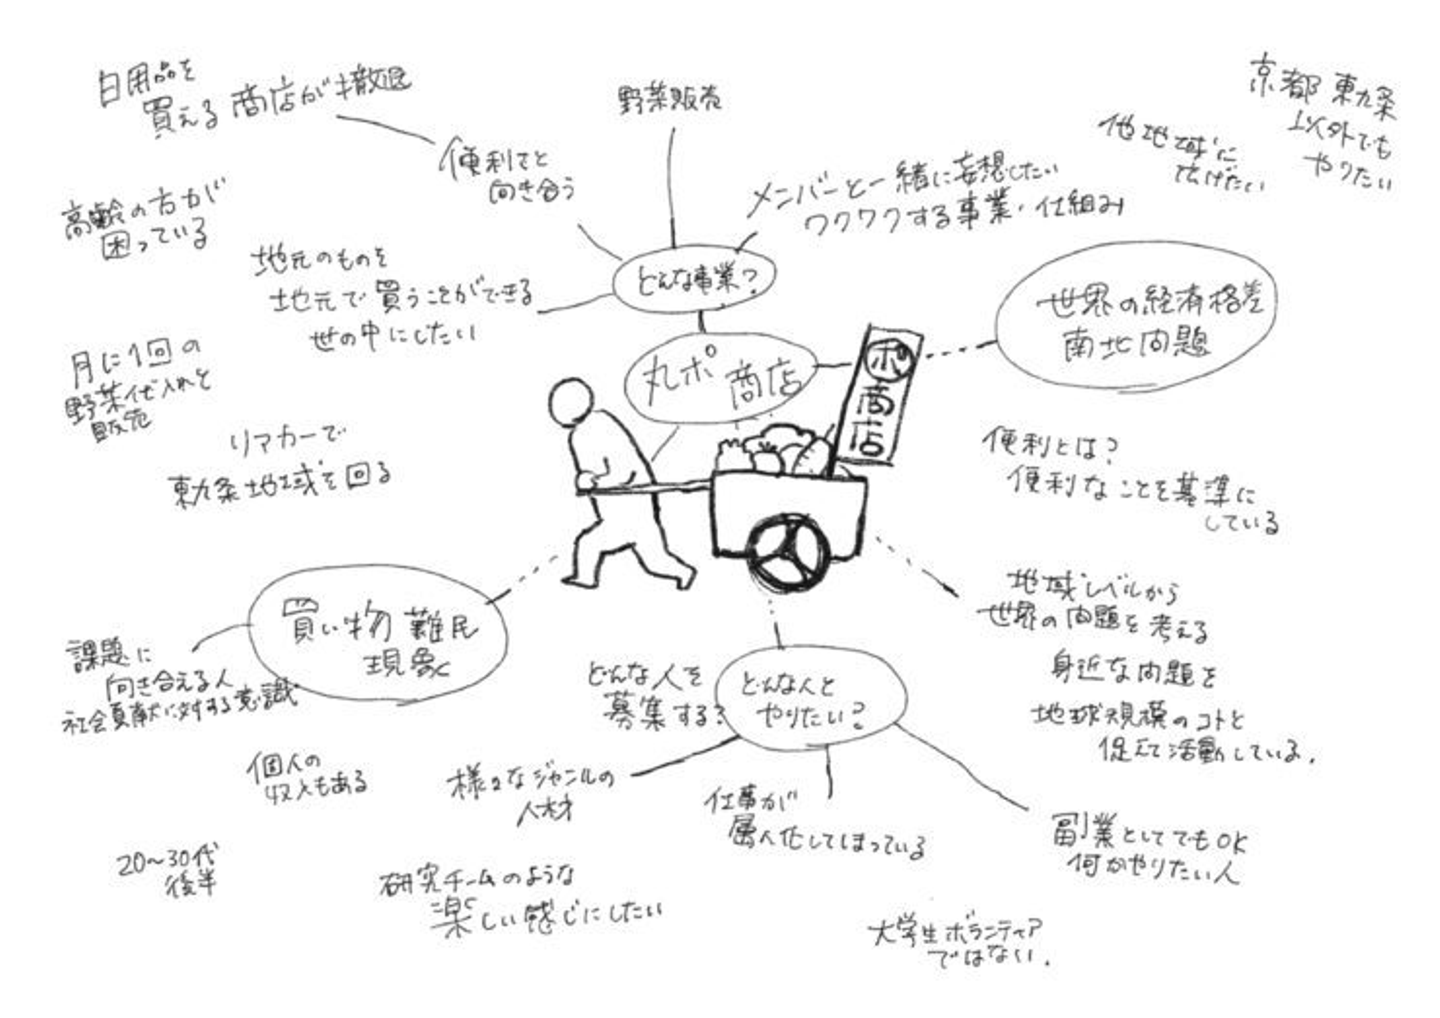 日用品を
買える商店が撤退
野菜販売
京都 東九条
以外でも
やりたい
他地域に
広げたい
便利さと
向き合う
メンバーと一緒に妄想したい
ワクワクする事業・仕組み
高齢の方が
困っている
地元のものを
地元で買うことができる
世の中にしたい
どんな事業?
世界の経済格差
南北問題
丸ポ商店
ポ
商
店
月に1回の
野菜仕入れと
販売
リアカーで
東九条地域を回る
便利とは?
便利なことを基準に
している
買い物難民
現象
課題に
向き合える人
社会貢献に対する意識
地域レベルから
世界の問題を考える
身近な問題を
地球規模のコトと
捉えて活動している.
どんな人を
募集する?
どんな人と
やりたい?
個人の
収入もある
様々なジャンルの
人材
仕事が
属人化してしまっている
副業としてでもOK
何かやりたい人
20~30代
後半
研究チームのような
楽しい感じにしたい
大学生ボランティア
ではない.